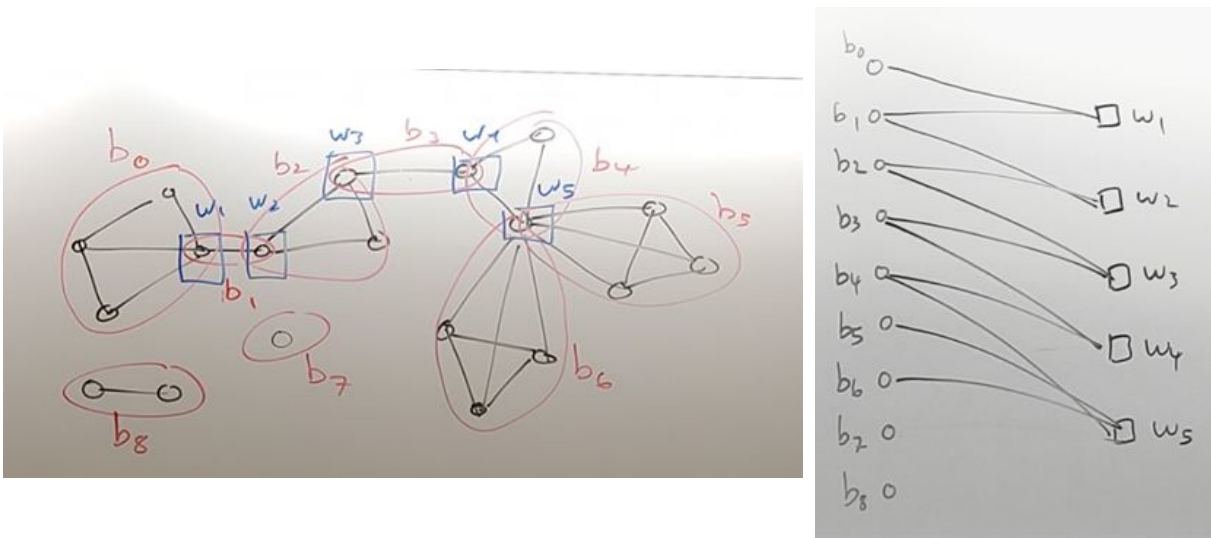 b0
w1
w2
b1
b2
w3
b3
w4
b4
w5
b5
b6
b7
b8
b0
b1
b2
b3
b4
b5
b6
b7
b8
w1
w2
w3
w4
w5